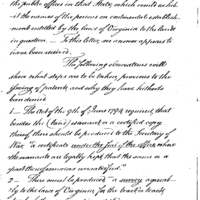 the public offices in that State, which would exhib-
it the names of the persons on continental establish-
ment entitled by the laws of Virginia to the lands
in question. — To this letter no answer appears to
have been received.
The following observations will
shew what steps are to be taken previous to the
issuing of patents and why they have hitherto
been denied
1 — The Act of the 9th of June 1794 required, that
besides the (land) warrant or a certified copy
thereof there should be produced to the Secretary of
War, "a certificate under the seal of the office where
the warrants are legally kept that the same or a
part thereof remains unsatisfied."
2 — There must be produced "a survey agreeab-
ly to the laws of Virginia for the tract or tracts